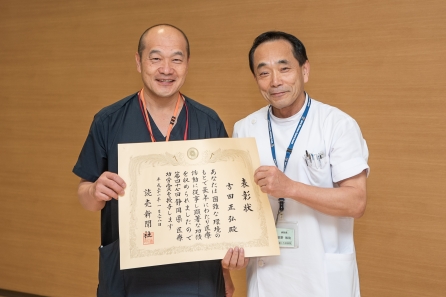 表彰状
吉田正弘殿
あなたは困難な環境の
もとで長年にわたり医療
活動に従事し顕著な功績
を収められましたので
第四十七回静岡県医療
功労賞を授与します
読売新聞社